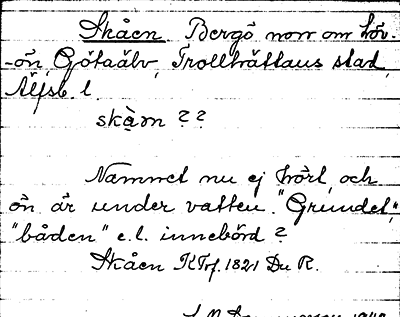 Skåen. Bergö norr om Höv-
-ön, Götaälv, Trollhättans stad,
Älfsb. l.
skå̀ən ? ?
Namnet nu ej hört, och
ön är under vatten. "Grundet",
"båden" e.l. innebörd?
Skåen KTrf. 1821 Du R.